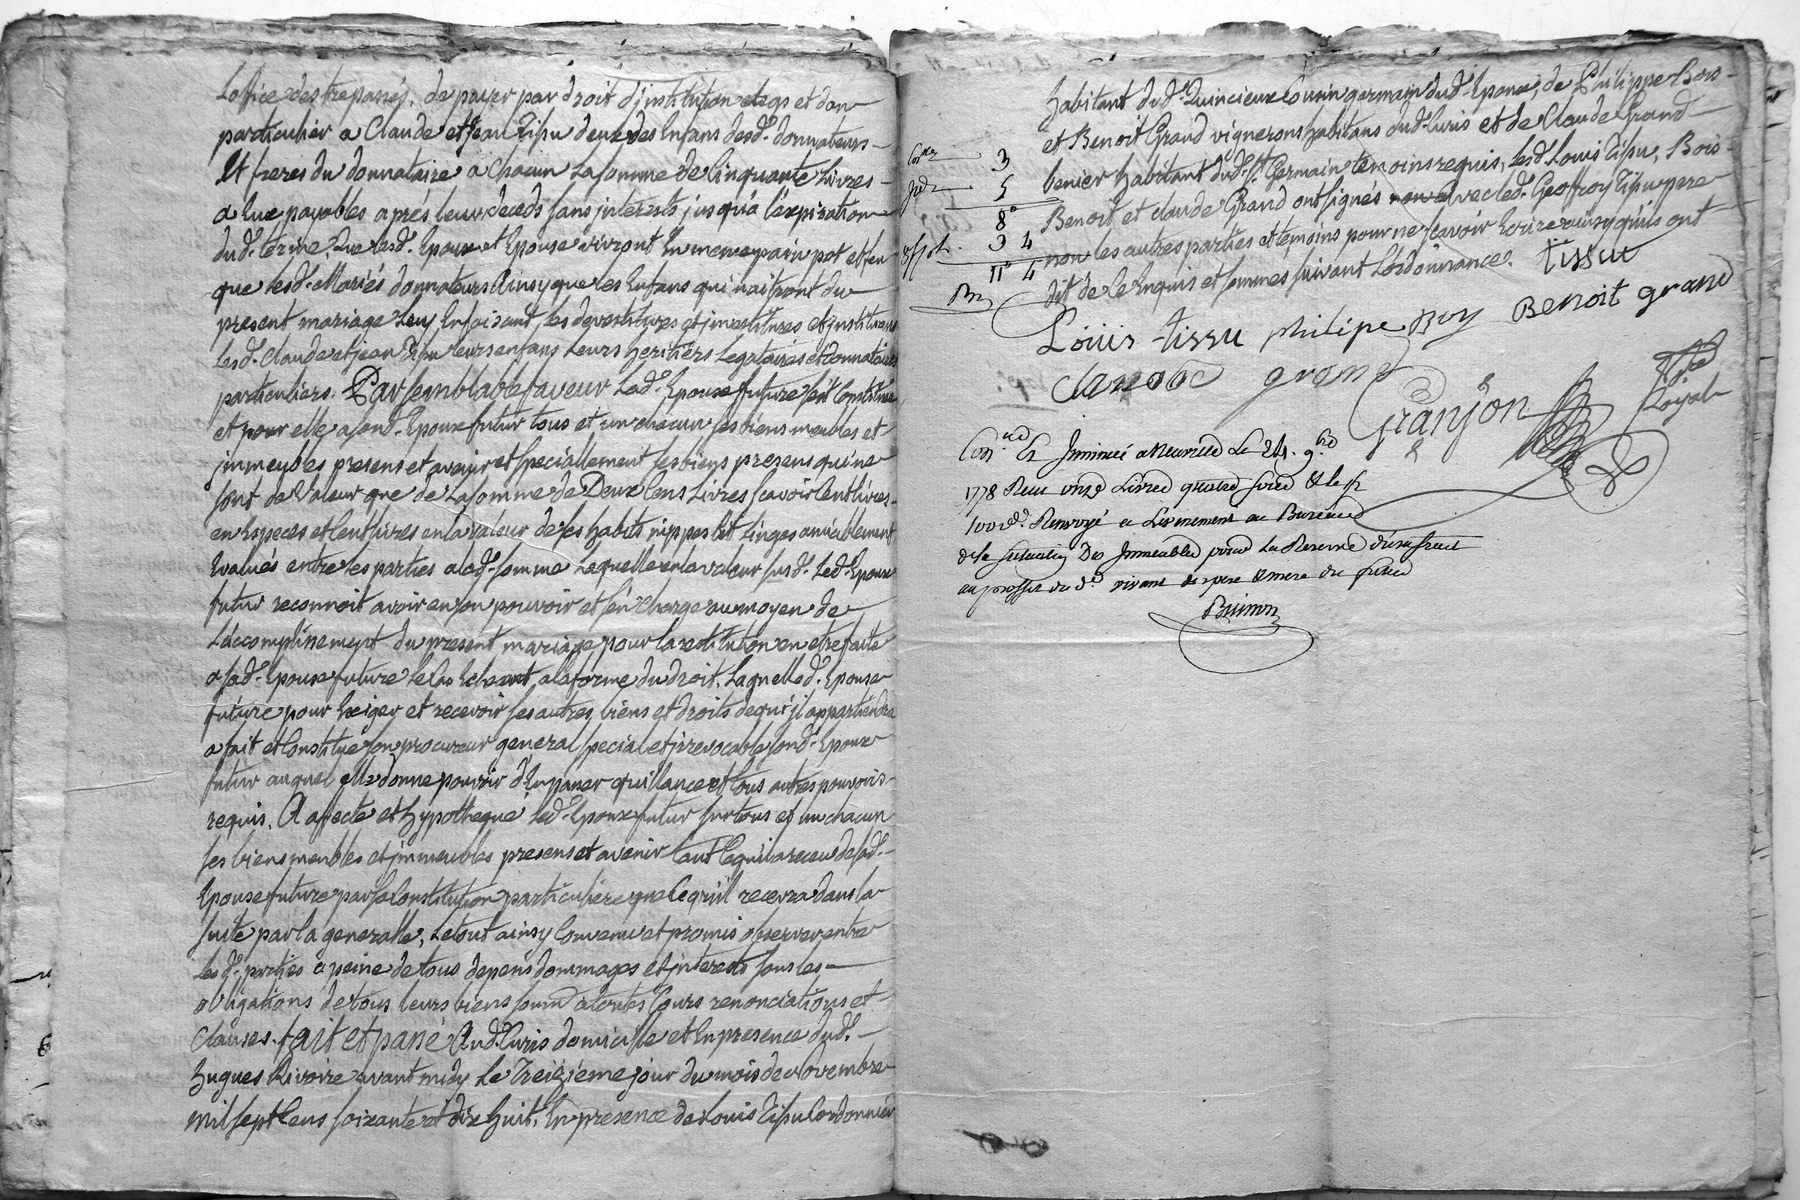 Loffice des trepassés, de payer par droit d'jnstitution etlegs et don
particulier a Claude et Jean Tissu deux des Enfans desd. donnateurs
et freres du donnataire a chacun La somme de Cinquante Livres
a Eux payables aprés leur deceds sans jnterests jusqu'a l'expiration
dud. terme, Que lesd. Epoux et Epouse vivront En meme pain pot et feu
que lesd. Mariés donnateurs Ainsy que les Enfans qui naitront du
present mariage Leur Enfaisant, les devestitures et jnvestitures et jnstituent
lesd. Claude et jean Tissu leurs enfans Leurs heritiers Legataires et donnataires
particuliers. Par semblable faveur Lad. Epouse future s'est Constituée
et pour elle a sond. Epoux futur tous et un chacun ses biens meubles et
jmmeubles presens et avenir et speciallement ses biens presens qui ne
sont de valeur que de La somme de Deux Cens Livres scavoir Cent livres
en Especes et Cent livres en la valeur de ses habits nippes et Linges amiablement
Evalués entre les parties a lad. somme Laquelle en la valeur susd. Led. Epoux
futur reconnoit avoir en son pouvoir et s'en charge au moyen de
L'accomplissement du present mariage pour la restitution en etre faite
a sad. Epouse future le Cas Echeant a la forme du droit. Laquelle d. Epouse
future pour Exiger et recevoir ses autres biens et droits de qui jl appartiendra
a fait et Constitué son procureur general special et jrrevocable sond. Epoux
futur auquel elle donne pouvoir d'En passer quittance et tous autres pouvoirs
requis. A affecté et hypotheque Led. Epoux futur sur tous et un chacun
ses biens meubles et jmmeubles presens et avenir tant Ce qu'il a receu de sad.
Epouse future par sa Constitution particuliere que Ce qu'il recevra dans la
suite par la generalle, Le tout ainsy Convenu et promis observer entre
Les d. parties a peine de tous depens dommages et jnterests sous les
obligations de tous leurs biens soum a toutes Cours renonciations et
Clauses. fait et passé Aud. Curis domicille et En presence dud.
hugues Rivoire avant midy Le Treizieme jour du mois de Novembre
Mil sept Cens soixante et dix huit, En presence de Louis Tissu Cordonnier
habitant dud. Quincieux Cousin germain dud. Epoux, de Philippe Bois
et Benoit Grand vignerons habitans dud. Curis et de Claude Grand
benier habitant dud. St. Germain temoins requis, lesd. Louis Tissu, Bois
Benoit et claude Grand ont signés avec led. Geoffroy Tissu pere
non les autres parties et temoins pour ne scavoir Ecrire ainsy qu'ils ont
dit de Ce Enquis et sommes suivant L'ordonnance. tissu
3
5
8
3 4
11 4
Loüis tissu philipe Boy Benoit grand
claude grand
Granjon
Royal
Con.lé Et Insinué a Neuville Le 24. 9.bre
1778 Reçu onze Livres quatre sols
100.d. Renvoyé a L'evenement au Bureau
de la situation Des Immeubles pour La Reserve d'usufruit
au proffit du d. vivant des pere & mere du futur
Brisson